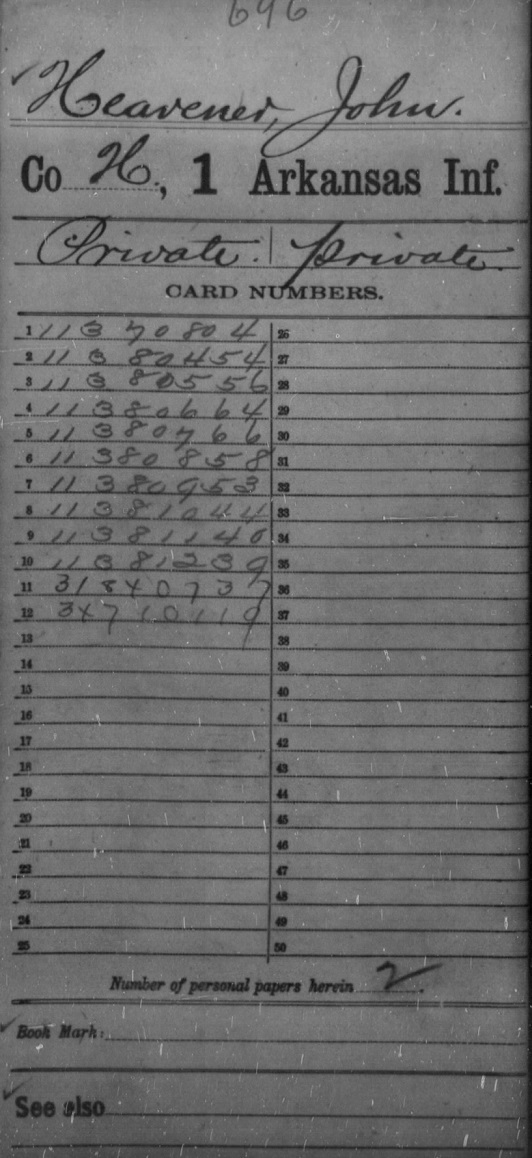 696
Heavener, John.
Co H., 1 Arkansas Inf.
Private. | Private.
CARD NUMBERS.
1 11370804 26
2 11380454 27
3 11380556 28
4 11380664 29
5 11380766 30
6 11380858 31
7 11380953 32
8 11381044 33
9 11381140 34
10 11381239 35
11 31840737 36
12 34710119 37
13 38
14 39
15 40
16 41
17 42
18 43
19 44
20 45
21 46
22 47
23 48
24 49
25 50
Number of personal papers herein 2.
Book Mark:
See also